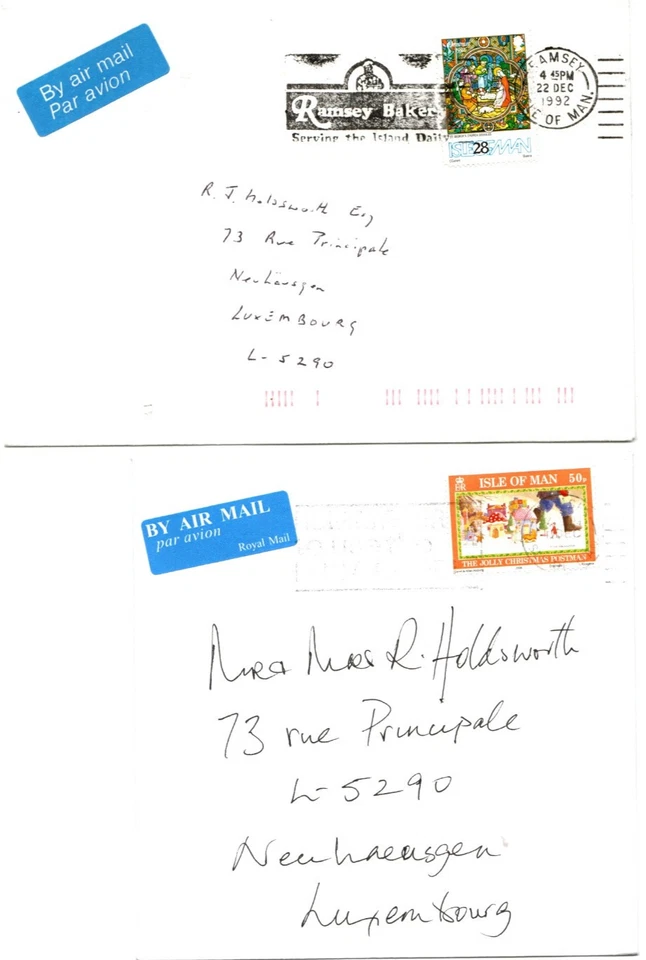 By air mail
Par avion
Ramsey Bakery
Serving the Island Daily
28
ISLE OF MAN
RAMSEY
4 45PM
22 DEC
1992
ISLE OF MAN.
R. J. Holdsworth Esq
73 Rue Principale
Neuhäusgen
LUXEMBOURG
L-5290
BY AIR MAIL
par avion
Royal Mail
ISLE OF MAN 50p
THE JOLLY CHRISTMAS POSTMAN
Mr & Mrs R. Holdsworth
73 rue Principale
L-5290
Neuhaeusgen
Luxembourg